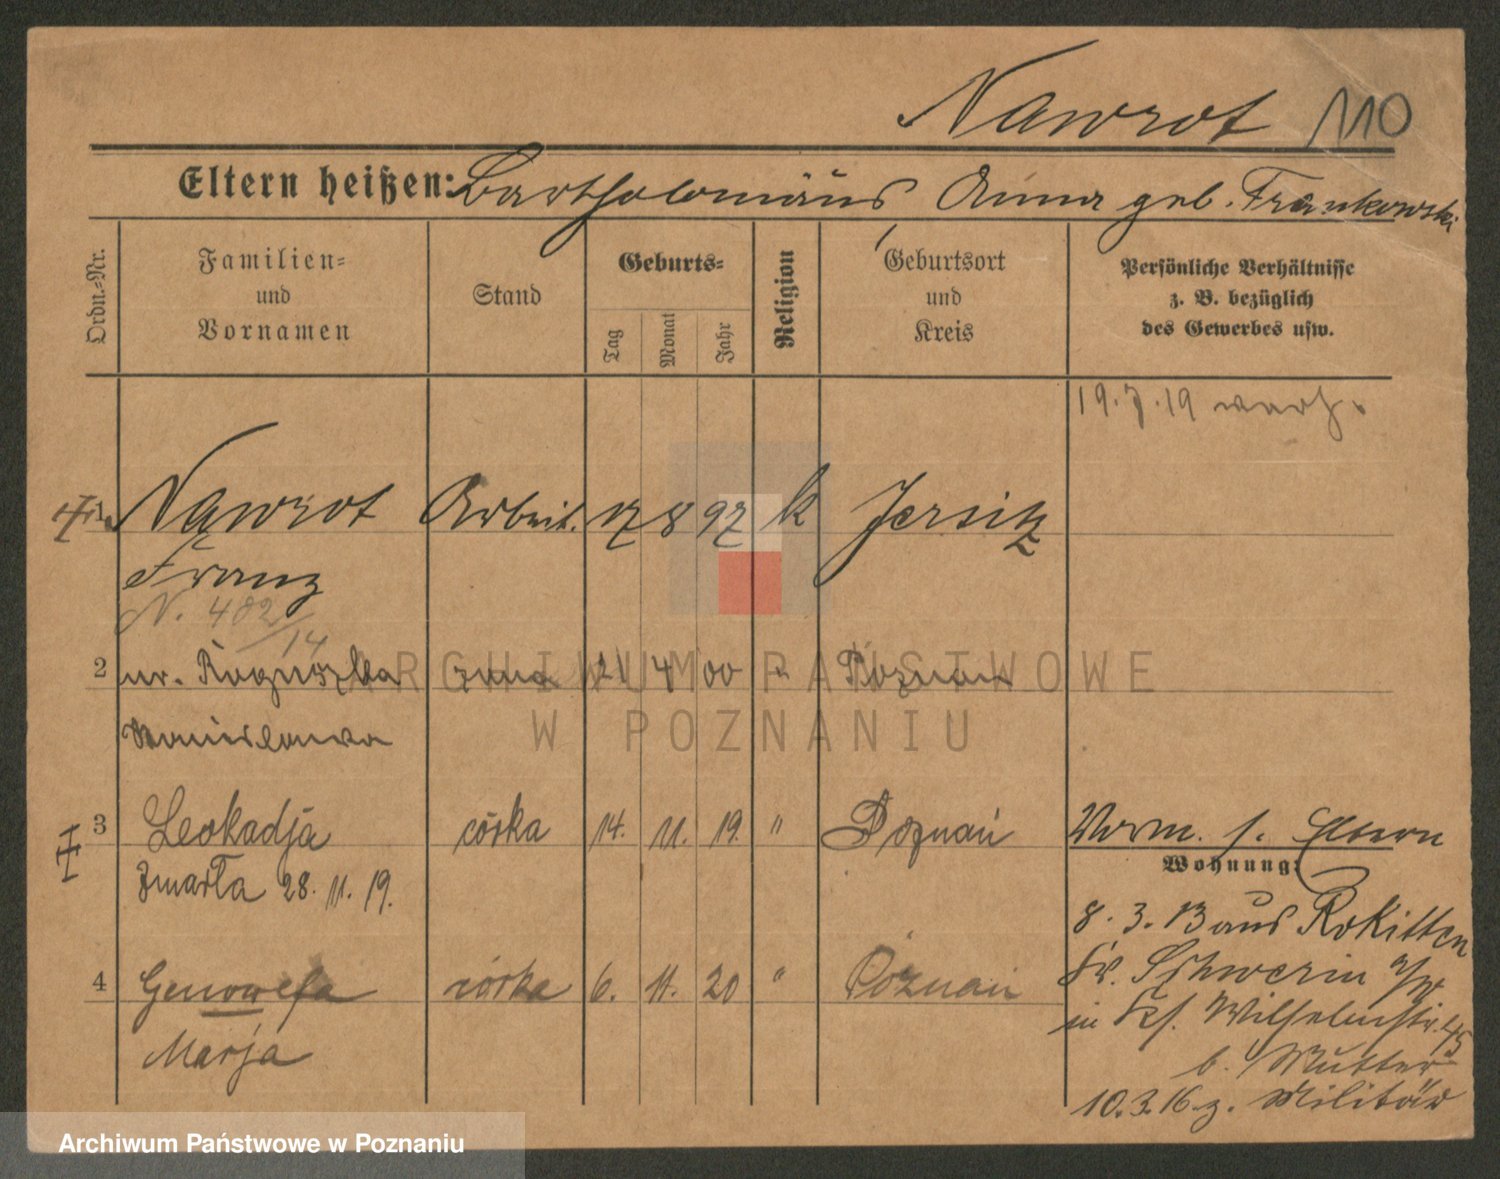 Nawrot 110
Eltern heißen: Bartholomäus Anna geb. Frankowski
Ordn.=Nr.
Familien= und Vornamen
Stand
Geburts=
Tag
Monat
Jahr
Religion
Geburtsort und Kreis
Persönliche Verhältnisse z. B. bezüglich des Gewerbes usw.
19. 7. 19
1. Nawrot Arbeit. 17 8 97 k Jersitz
Franz
N. 482/14
2 ur. żona 21 4 00 " Poznań
Stanisława
3 Leokadja córka 14. 11. 19. " Poznań
Zmarła 28. 11. 19.
4 Genowefa córka 6. 11. 20 " Poznań
Marja
Vorm. s. Eltern
Wohnung:
8. 3. 13 aus Rokitten
Kr. Schwerin a/W
in Wilhelmstr. 45
b. Mutter
10.3.16 z. Militär
ARCHIWUM PAŃSTWOWE
W POZNANIU
Archiwum Państwowe w Poznaniu